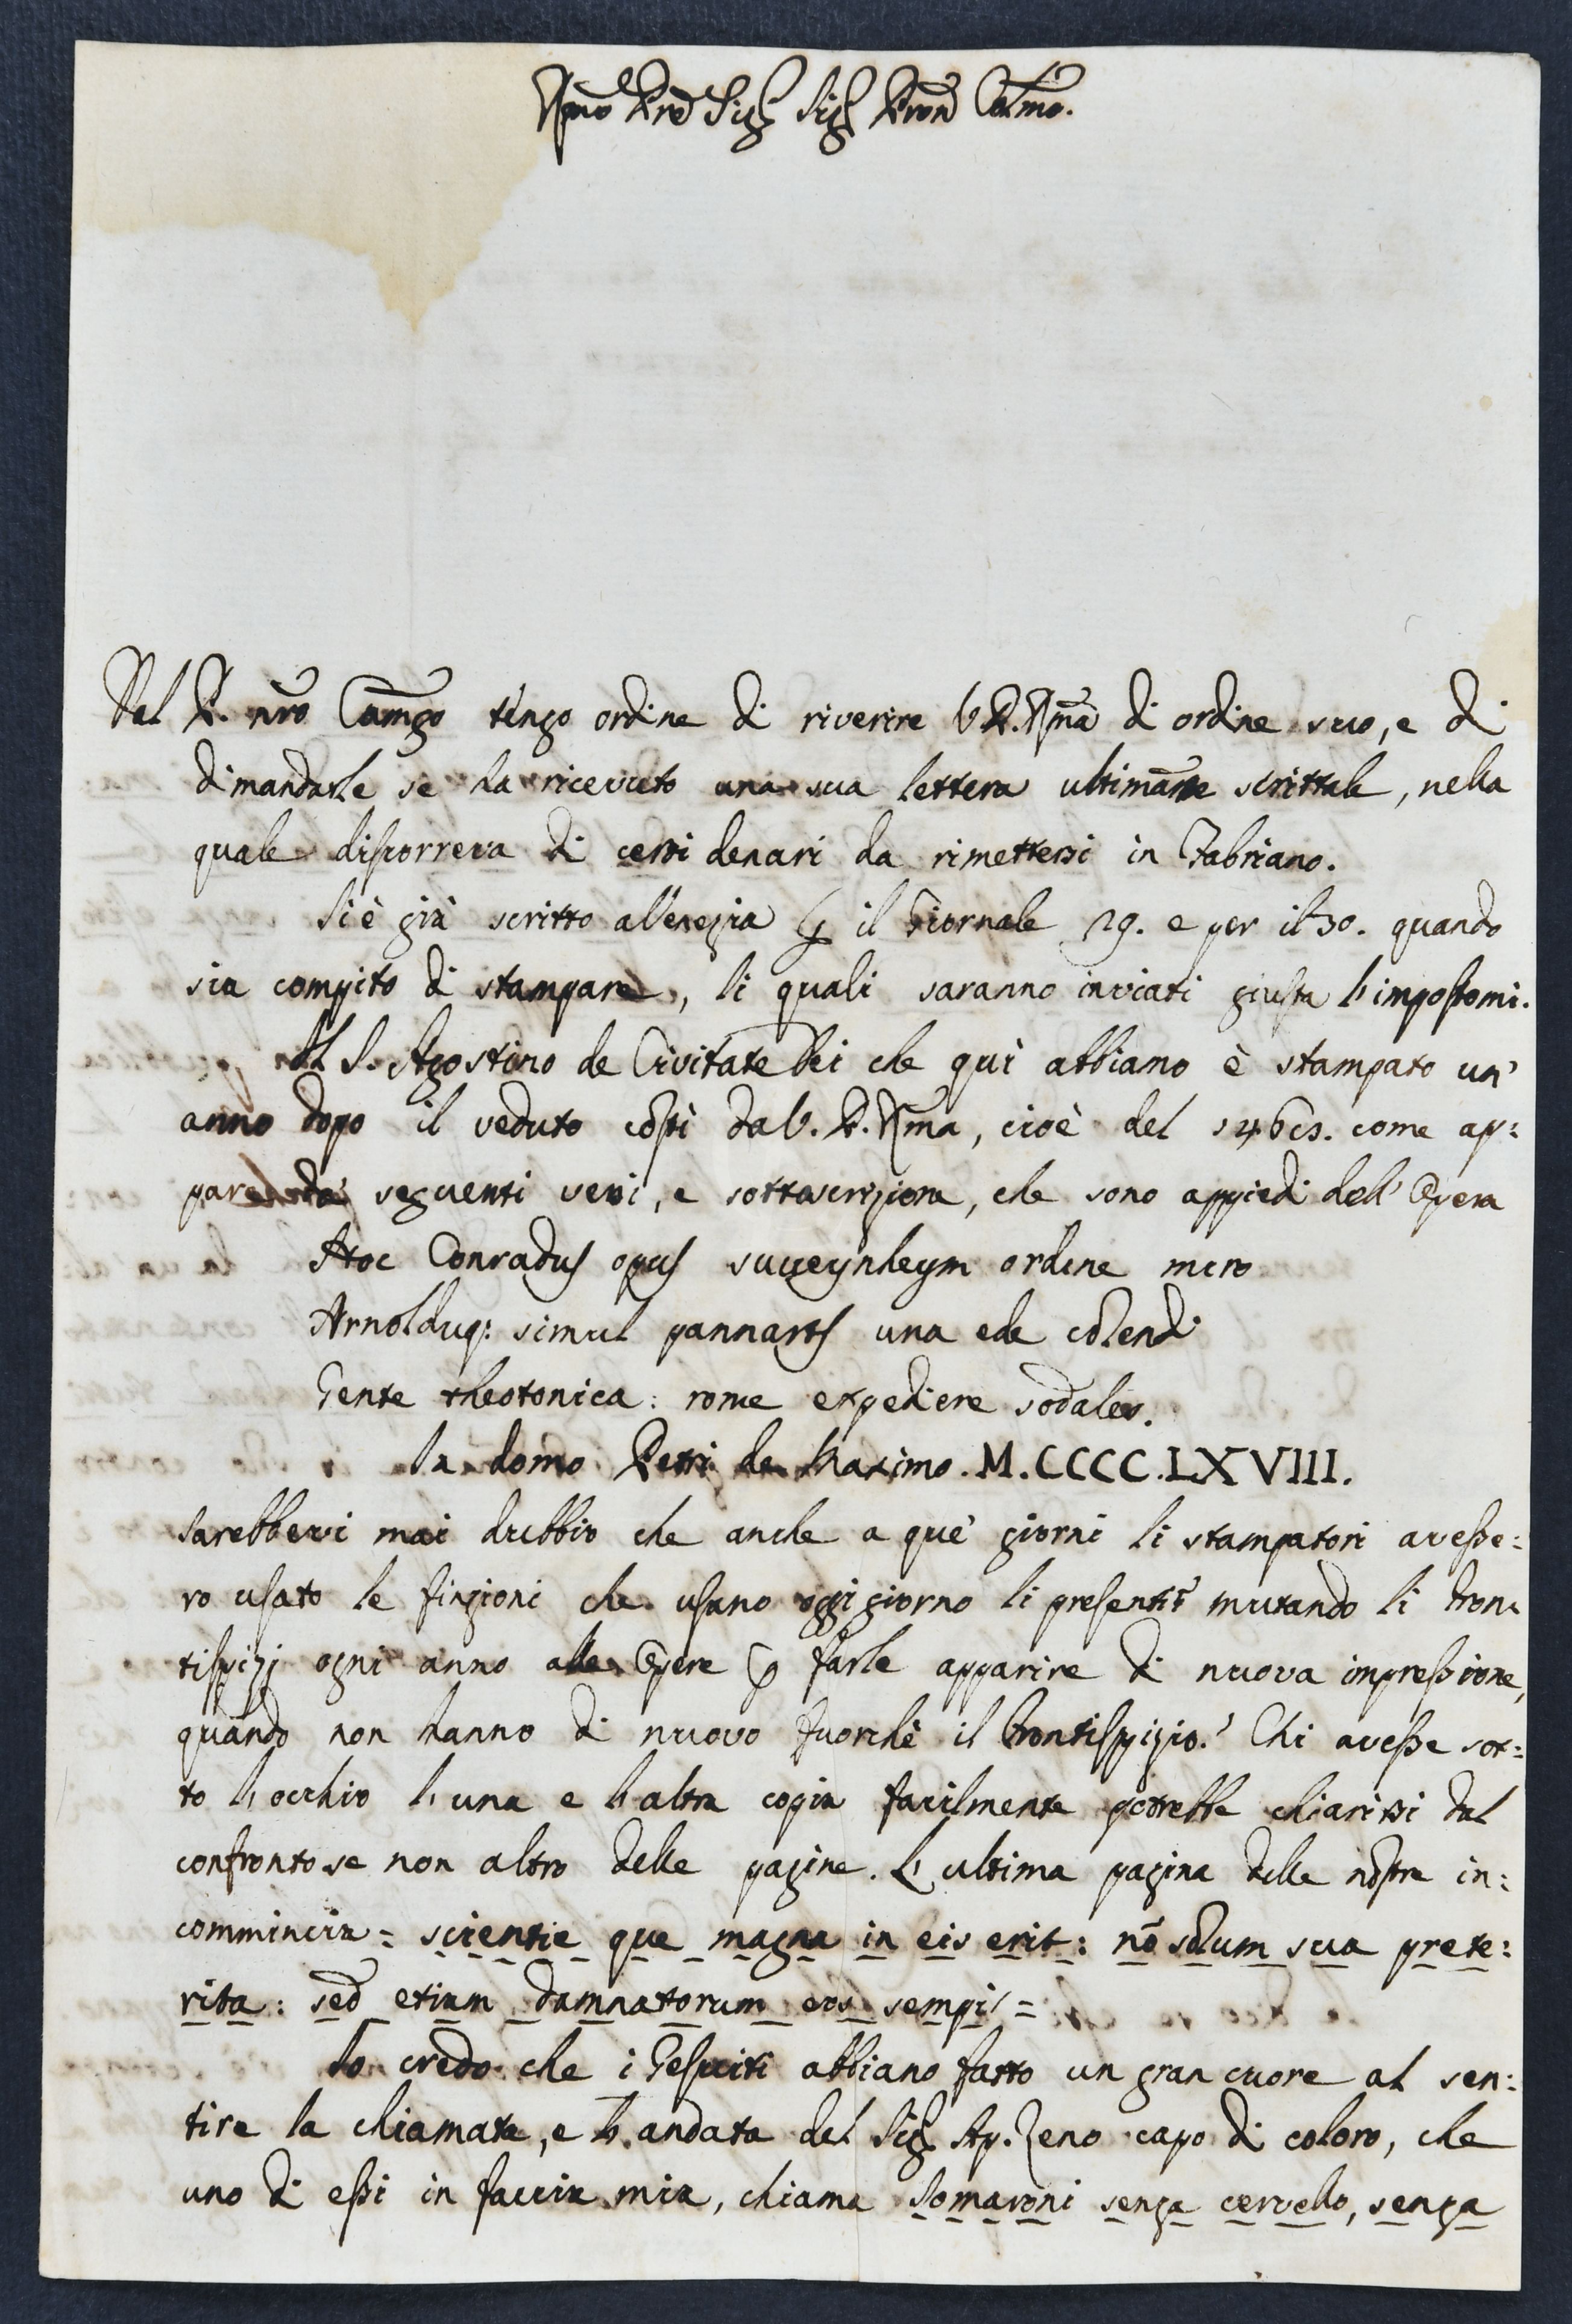 Rmo Pre Sig Sig Pron Colmo.
Dal P. nro Camgo tengo ordine di riverire V. P. Rma di ordine suo, e di
dimandarle se ha ricevuto una sua lettera ultimamte scrittale, nella
quale discorreva di certi denari da rimettersi in Fabriano.
Si è già scritto a Venezia p il Giornale 29. e per il 30. quando
sia compito di stampare, li quali saranno inviati giusta l'impostomi.
Il S. Agostino de Civitate Dei che quì abbiamo è stampato un'
anno dopo il veduto costì da V. P. Rma, cioè del 1468. come ap:
pare da' seguenti versi, e sottoscrizione, che sono appiedi dell'Opera
Hoc Conradus opus suueynheym ordine miro
Arnolduq: simul pannarts una ede colendi
Gente theotonica: rome expediere sodales.
In domo Petri de Maximo. M.CCCC.LXVIII.
Sarebbevi mai dubbio che anche a que' giorni li stampatori avesse:
ro usato le finzioni che usano oggi giorno li presenti mutando li fron:
tispizj ogni anno alle Opere p farle apparire di nuova impressione,
quando non hanno di nuovo fuorchè il frontispizio? Chi avesse sot:
to l'occhio l'una e l'altra copia facilmente potrebbe chiarirsi dal
confronto se non altro delle pagine. L'ultima pagina della nostra in:
commincia = scientie que magna in eis erit: nō solum sua prete:
rita: sed etiam damnatorum eos sempi =
Io credo che i Gesuiti abbiano fatto un gran cuore al sen:
tire la chiamata, e l'andata del Sig. Ap. Zeno capo di coloro, che
uno di essi in faccia mia, chiama Somaroni senza cervello, senza